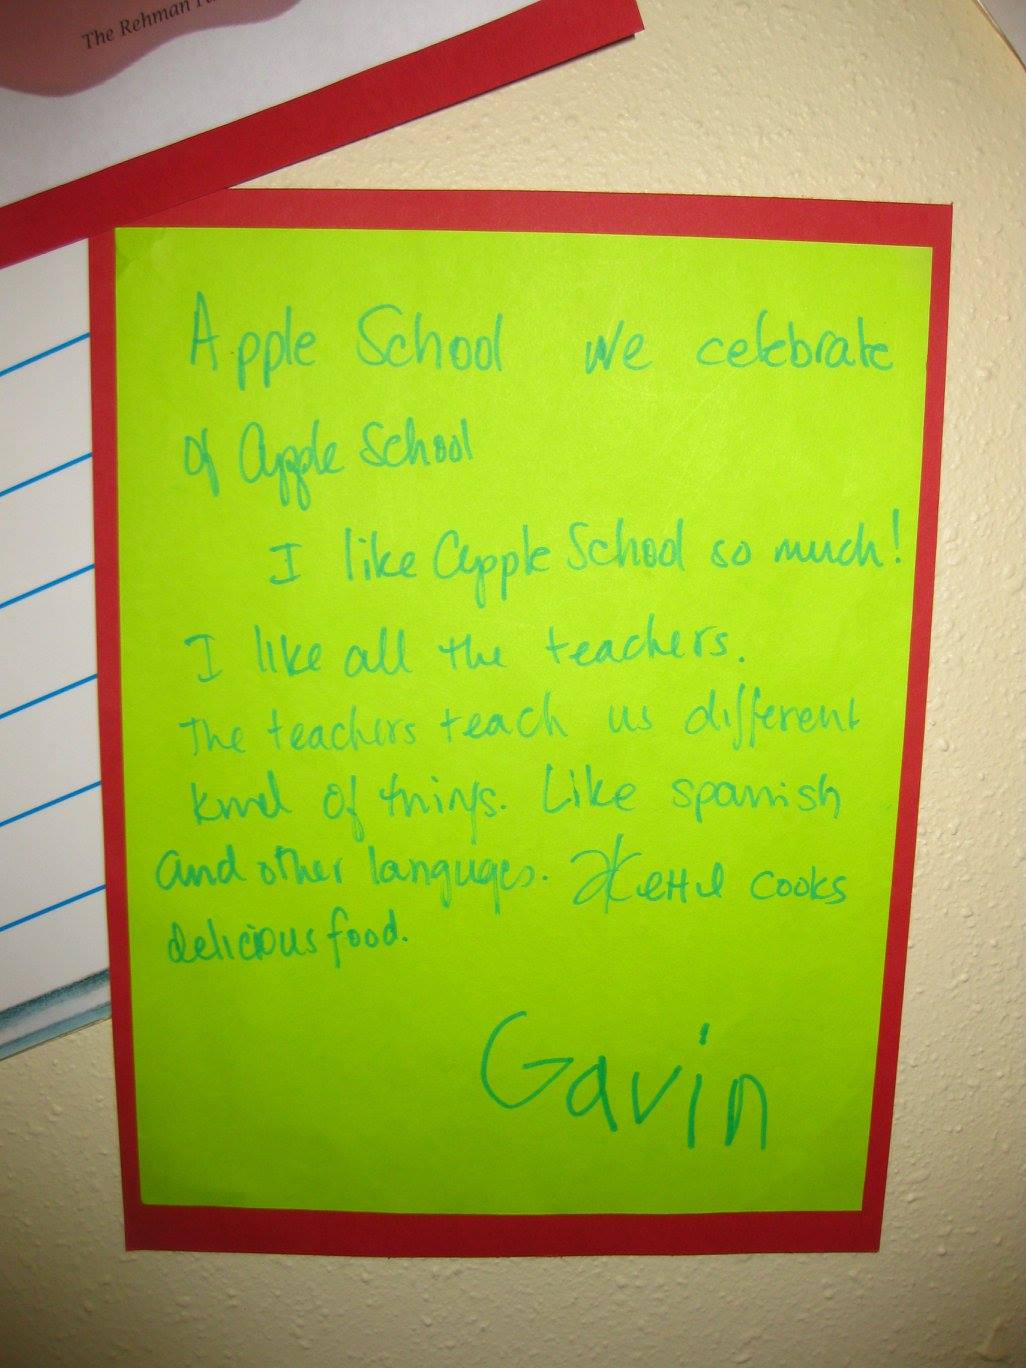 The Rehman
Apple School we celebrate
of apple School
I like apple School so much!
I like all the teachers.
The teachers teach us different
kind of things. Like spanish
and other languges.
cooks
delicious food.
Gavin